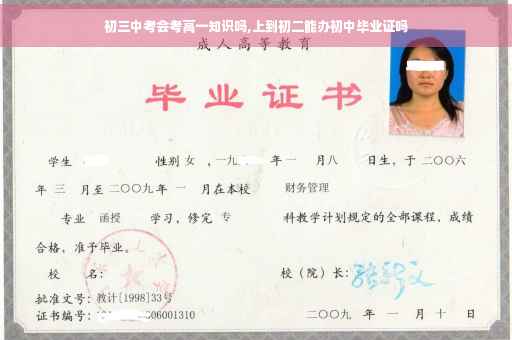 初三中考会考高一知识吗,上到初二能办初中毕业证吗
成人高等教育
毕业证书
学生 性别 女 ,一九 年 一 月 八 日生，于 二〇〇六
年 三 月至 二〇〇九 年 一 月在本校 财务管理
专业 函授 学习，修完 专 科教学计划规定的全部课程，成绩
合格，准予毕业。
校 名： 校（院）长：
批准文号：教计[1998]33号
证书编号： 06001310 二〇〇九 年 一 月 十 日